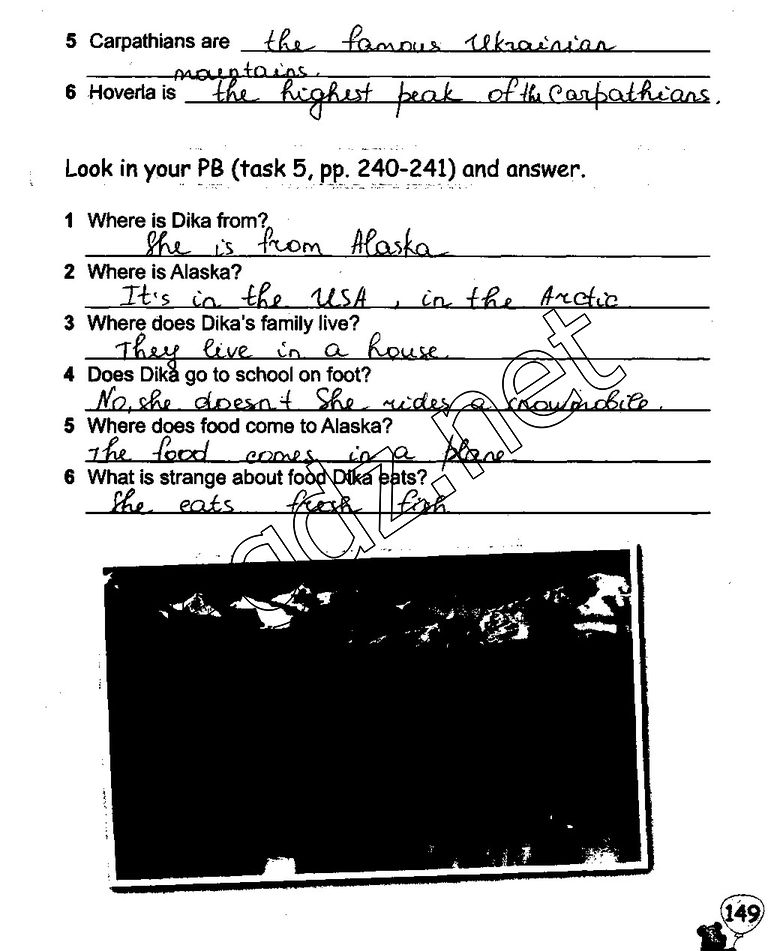 5 Carpathians are the famous Ukrainian
mountains.
6 Hoverla is the highest peak of the Carpathians.
Look in your PB (task 5, pp. 240-241) and answer.
1 Where is Dika from?
She is from Alaska
2 Where is Alaska?
It's in the USA, in the Arctic
3 Where does Dika's family live?
They live in a house.
4 Does Dika go to school on foot?
No, she doesn't She rides a snowmobile.
5 Where does food come to Alaska?
The food comes in a plane
6 What is strange about food Dika eats?
She eats fresh fish
gdz.net
149